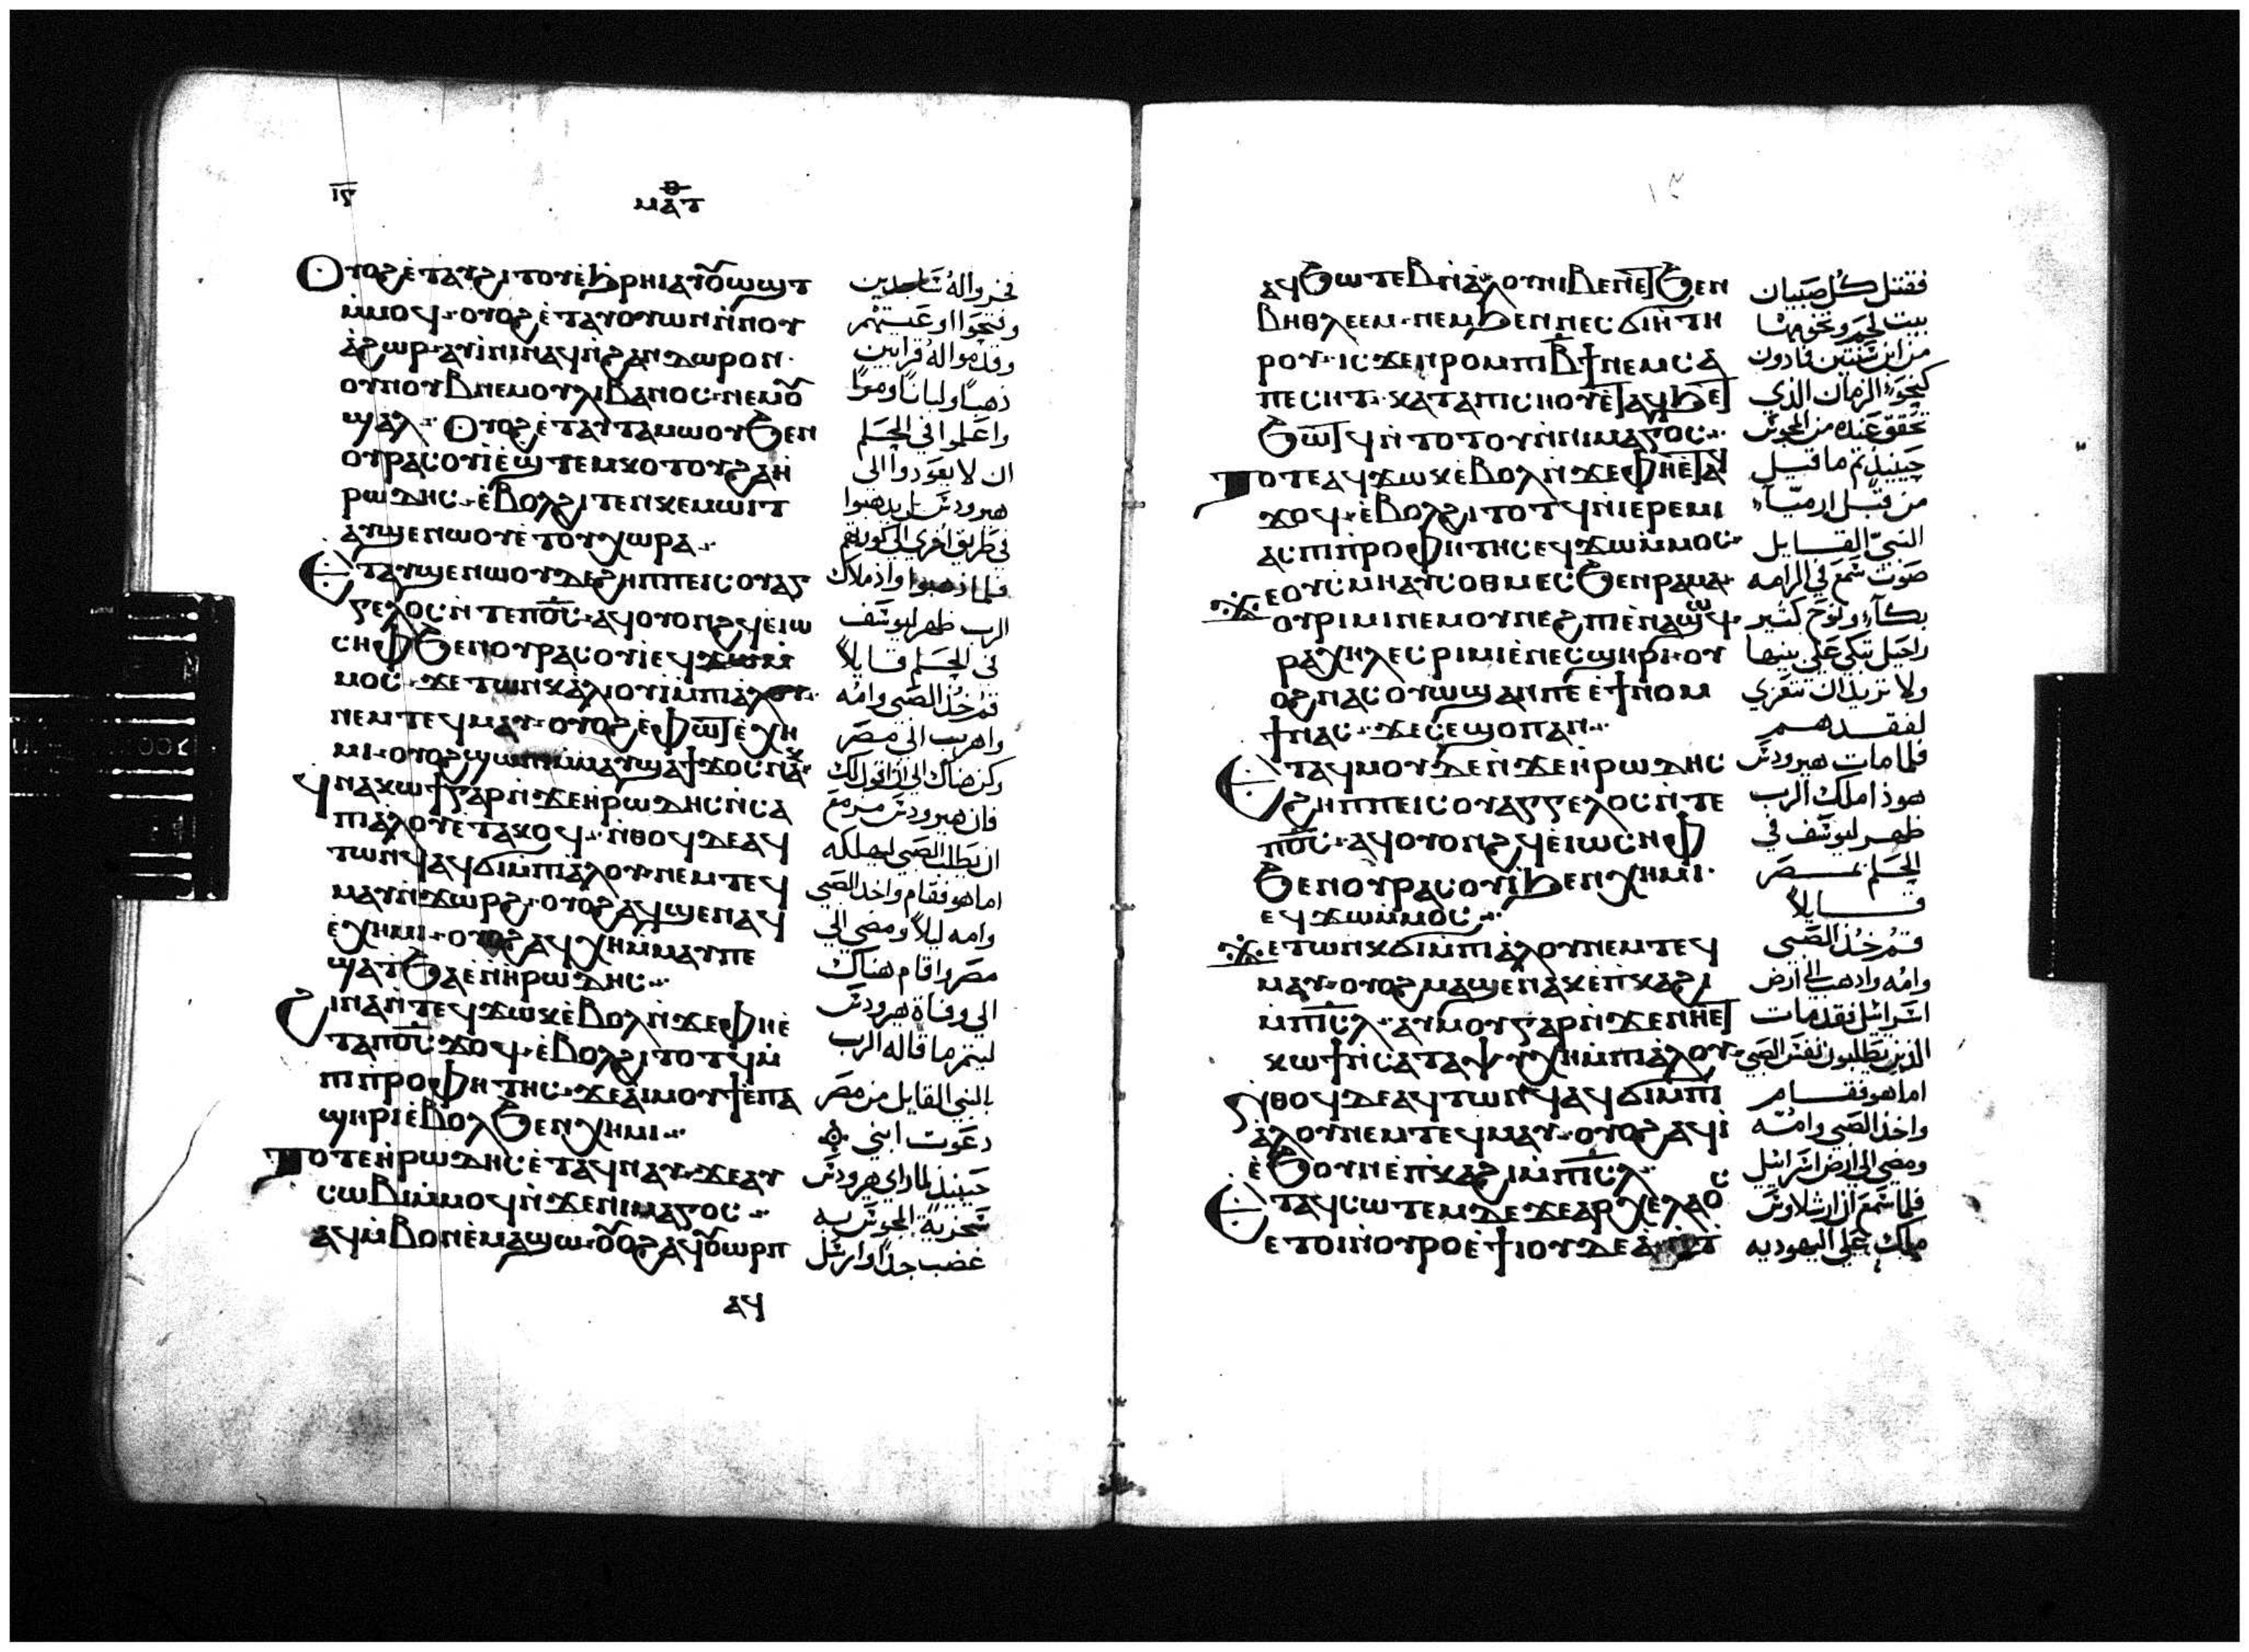 ⲓ̅ⲋ̅
ⲑ
ⲙⲁⲧ
Ⲟⲩⲟϩ ⲉ̀ⲧⲁⲩϩⲓⲧⲟⲩ ⲉ̀ϧⲣⲏⲓ ⲁⲩⲟⲩⲱϣⲧ
ⲙ̀ⲙⲟϥ· ⲟⲩⲟϩ ⲉ̀ⲧⲁⲩⲟⲩⲱⲛ ⲛ̀ⲛⲟⲩ
ⲁ̀ϩⲱⲣ· ⲁⲩⲓ̀ⲛⲓ ⲛⲁϥ ⲛ̀ϩⲁⲛ ⲇⲱⲣⲟⲛ·
ⲟⲩⲛⲟⲩⲃ ⲛⲉⲙ ⲟⲩⲗⲓⲃⲁⲛⲟⲥ· ⲛⲉⲙ ⲟⲩ
ϣⲁⲗ· Ⲟⲩⲟϩ ⲉ̀ⲧⲁⲩⲧⲁⲙⲱⲟⲩ ϧⲉⲛ
ⲟⲩⲣⲁⲥⲟⲩⲓ̀ ⲉ̀ϣⲧⲉⲙⲕⲟⲧⲟⲩ ϩⲁ ⲏ̀
ⲣⲱⲇⲏⲥ· ⲉ̀ⲃⲟⲗ ϩⲓⲧⲉⲛ ⲕⲉⲙⲱⲓⲧ
ⲁⲩϣⲉⲛⲱⲟⲩ ⲉ̀ⲧⲟⲩⲭⲱⲣⲁ·
Ⲉⲧⲁⲩϣⲉⲛⲱⲟⲩ ⲇⲉ ϩⲏⲡⲡⲉ ⲓⲥ ⲟⲩⲁⲅ
ⲅⲉⲗⲟⲥ ⲛ̀ⲧⲉ ⲡⲟ̅ⲥ̅· ⲁϥⲟⲩⲟⲛϩϥ ⲉ̀ⲓⲱ
ⲥⲏⲫ ϧⲉⲛ ⲟⲩⲣⲁⲥⲟⲩⲓ̀ ⲉϥϫⲱ ⲙ̀
ⲙⲟⲥ· ϫⲉ ⲧⲱⲛⲕ ⲁ̀ⲗⲓⲟⲩⲓ̀ ⲙ̀ⲡⲓⲁ̀ⲗⲟⲩ·
ⲛⲉⲙ ⲧⲉϥⲙⲁⲩ· ⲟⲩⲟϩ ⲉ̀ⲫⲱⲧ ⲉ̀ⲭⲏ
ⲙⲓ· ⲟⲩⲟϩ ϣⲱⲡⲓ ⲙ̀ⲙⲁⲩ ϣⲁϯϫⲟⲥ ⲛⲁⲕ·
ϥⲛⲁⲕⲱϯ ⲅⲁⲣ ⲛ̀ϫⲉ ⲏ̀ⲣⲱⲇⲏⲥ ⲛ̀ⲥⲁ
ⲡⲓⲁ̀ⲗⲟⲩ ⲉ̀ⲧⲁⲕⲟϥ· ⲛ̀ⲑⲟϥ ⲇⲉ ⲁϥ
ⲧⲱⲛϥ ⲁϥϭⲓ ⲙ̀ⲡⲓⲁ̀ⲗⲟⲩ ⲛⲉⲙ ⲧⲉϥ
ⲙⲁⲩ ⲛ̀ϫⲱⲣϩ· ⲟⲩⲟϩ ⲁϥϣⲉⲛⲁϥ
ⲉ̀ⲭⲏⲙⲓ· ⲟⲩⲟϩ ⲁϥⲭⲏ ⲙ̀ⲙⲁⲩ ⲡⲉ
ϣⲁ ⲧϧⲁⲉ̀ ⲛ̀ⲏ̀ⲣⲱⲇⲏⲥ·
Ϩⲓⲛⲁ ⲛ̀ⲧⲉϥϫⲱⲕ ⲉ̀ⲃⲟⲗ ⲛ̀ϫⲉ ⲫⲏ ⲉ̀
ⲧⲁ ⲡⲟ̅ⲥ̅ ϫⲟϥ· ⲉ̀ⲃⲟⲗ ϩⲓⲧⲟⲧϥ ⲙ̀
ⲡⲓⲡ̀ⲣⲟⲫⲏⲧⲏⲥ· ϫⲉ ⲁ̀ⲓⲙⲟⲩϯ ⲉ̀ⲡⲁ
ϣⲏⲣⲓ ⲉ̀ⲃⲟⲗ ϧⲉⲛ ⲭⲏⲙⲓ·
Ⲧⲟⲧⲉ ⲏ̀ⲣⲱⲇⲏⲥ ⲉ̀ⲧⲁϥⲛⲁⲩ· ϫⲉ ⲁⲩ
ⲥⲱⲃⲓ ⲙ̀ⲙⲟϥ ⲛ̀ϫⲉ ⲛⲓⲙⲁⲅⲟⲥ·
ⲁϥⲙ̀ⲃⲟⲛ ⲉ̀ⲙⲁϣⲱ· ⲟⲩⲟϩ ⲁϥⲟⲩⲱⲣⲡ
ⲁϥ
فخروا له ساجدين
وفتحوا اوعيتهم
وقدموا له قرابين
ذهباً ولباناً ومراً
واعلموا في الحلم
ان لا يعودوا الى
هيرودس بل يذهبوا
في طريق اخرى الى كورتهم
فلما ذهبوا واذ ملاك
الرب ظهر ليوسف
في الحلم قايلاً
قم خذ الصبي وامه
واهرب الى مصر
وكن هناك الى ان اقول لك
فان هيرودس مزمع
ان يطلب الصبي ليهلكه
اما هو فقام واخذ الصبي
وامه ليلاً ومضى الى
مصر واقام هناك
الى وفاة هيرودس
ليتم ما قاله الرب
بالنبي القايل من مصر
دعوت ابني
حينيذ لما راى هيرودس
سخرية المجوس به
غضب جداً وارسل
١٥
ⲁϥϧⲱⲧⲉⲃ ⲛ̀ⲁ̀ⲗⲟⲩ ⲛⲓⲃⲉⲛ ⲉⲧϧⲉⲛ
ⲃⲏⲑⲗⲉⲉⲙ· ⲛⲉⲙ ϧⲉⲛ ⲛⲉⲥϭⲓⲏ̀ ⲧⲏ
ⲣⲟⲩ· ⲓⲥϫⲉⲛ ⲣⲟⲙⲡⲓ ⲃ̅ϯ ⲛⲉⲙ ⲥⲁ
ⲡⲉⲥⲏⲧ· ⲕⲁⲧⲁ ⲡⲓⲥⲏⲟⲩ ⲉⲧⲁϥϧⲉⲧ
ϧⲱⲧϥ ⲛ̀ⲧⲟⲧⲟⲩ ⲛ̀ⲛⲓⲙⲁⲅⲟⲥ·
Ⲧⲟⲧⲉ ⲁϥϫⲱⲕ ⲉ̀ⲃⲟⲗ ⲛ̀ϫⲉ ⲫⲏ ⲉⲧⲁⲩ
ϫⲟϥ· ⲉ̀ⲃⲟⲗ ϩⲓⲧⲟⲧϥ ⲛ̀ⲓⲉⲣⲉⲙⲓ
ⲁⲥ ⲡⲓⲡ̀ⲣⲟⲫⲏⲧⲏⲥ ⲉϥϫⲱ ⲙ̀ⲙⲟⲥ·
ϫⲉ ⲟⲩⲥⲙⲏ ⲁⲩⲥⲟⲑⲙⲉⲥ ϧⲉⲛ ⲣⲁⲙⲁ·
ⲟⲩⲣⲓⲙⲓ ⲛⲉⲙ ⲟⲩⲛⲉϩⲡⲓ ⲉ̀ⲛⲁϣⲱϥ·
ⲣⲁⲭⲏⲗ ⲉⲥⲣⲓⲙⲓ ⲉ̀ⲛⲉⲥϣⲏⲣⲓ· ⲟⲩ
ⲟϩ ⲛⲁⲥⲟⲩⲱϣ ⲁⲛ ⲡⲉ ⲉ̀ϯⲛⲟⲙ
ϯ ⲛⲁⲥ· ϫⲉ ⲥⲉϣⲟⲡ ⲁⲛ·
Ⲉⲧⲁϥⲙⲟⲩ ⲇⲉ ⲛ̀ϫⲉ ⲏ̀ⲣⲱⲇⲏⲥ
ϩⲏⲡⲡⲉ ⲓⲥ ⲟⲩⲁⲅⲅⲉⲗⲟⲥ ⲛ̀ⲧⲉ
ⲡⲟ̅ⲥ̅· ⲁϥⲟⲩⲟⲛϩϥ ⲉ̀ⲓⲱⲥⲏⲫ
ϧⲉⲛ ⲟⲩⲣⲁⲥⲟⲩⲓ̀ ϧⲉⲛ ⲭⲏⲙⲓ·
ⲉϥϫⲱ ⲙ̀ⲙⲟⲥ·
ϫⲉ ⲧⲱⲛⲕ ϭⲓ ⲙ̀ⲡⲓⲁ̀ⲗⲟⲩ ⲛⲉⲙ ⲧⲉϥ
ⲙⲁⲩ· ⲟⲩⲟϩ ⲙⲁϣⲉⲛⲁⲕ ⲉ̀ⲡⲕⲁϩⲓ
ⲙ̀ⲡⲓⲥ̅ⲗ̅· ⲁⲩⲙⲟⲩ ⲅⲁⲣ ⲛ̀ϫⲉ ⲛⲏ ⲉⲧ
ⲕⲱϯ ⲛ̀ⲥⲁ ⲧⲁⲯⲩⲭⲏ ⲙ̀ⲡⲓⲁ̀ⲗⲟⲩ·
ⲛ̀ⲑⲟϥ ⲇⲉ ⲁϥⲧⲱⲛϥ ⲁϥϭⲓ ⲙ̀ⲡⲓ
ⲁ̀ⲗⲟⲩ ⲛⲉⲙ ⲧⲉϥⲙⲁⲩ· ⲟⲩⲟϩ ⲁϥⲓ̀
ⲉ̀ϧⲟⲩⲛ ⲉ̀ⲡⲕⲁϩⲓ ⲙ̀ⲡⲓⲥ̅ⲗ̅·
Ⲉⲧⲁϥⲥⲱⲧⲉⲙ ⲇⲉ ϫⲉ ⲁⲣⲭⲉⲗⲁⲟⲥ
ⲉⲧⲟⲓ ⲛ̀ⲟⲩⲣⲟ ⲉ̀ϯⲓⲟⲩⲇⲉⲁ̀
فقتل كل صبيان
بيت لحم وتخومها
من ابن سنتين فادون
كنحو الزمان الذي
تحقق عنده من المجوس
حينيذ تم ما قيل
من قبل ارميآء
النبي القايل
صوت سمع في الرامه
بكآء ونوح كثير
راحيل تبكي على بنيها
ولا تريد ان تتعزى
لفقدهم
فلما مات هيرودس
هوذا ملاك الرب
ظهر ليوسف في
الحلم بمصر
قايلاً
قم خذ الصبي
وامه واذهب الى ارض
اسرائيل فقد مات
الذين يطلبون نفس الصبي
اما هو فقام
واخذ الصبي وامه
ومضى الى ارض اسرائيل
فلما سمع ان ارشلاوس
ملك على اليهوديه